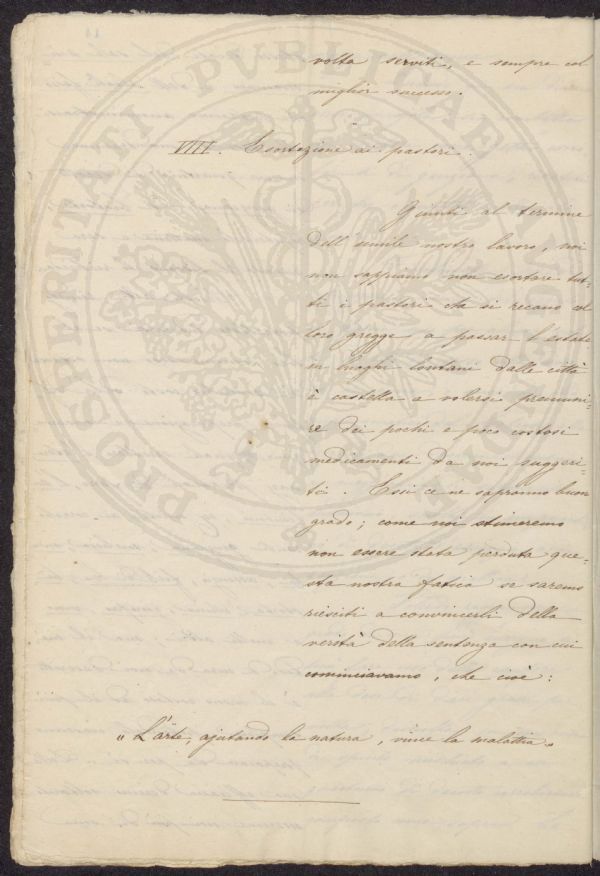 volta serviti, e sempre col
miglior successo.
VIIII. Esortazione ai pastori.
Giunti al termine
dell'umile nostro lavoro, noi
non sappiamo non esortare tut-
ti i pastori che si recano col
loro gregge a passar l'estate
in luoghi lontani dalle città
e castella a volersi premuni-
re dei pochi e poco costosi
medicamenti da noi suggeri-
ti. Essi ce ne sapranno buon
grado; come noi stimeremo
non essere stata perduta que-
sta nostra fatica se saremo
riesciti a convincerli della
verità della sentenza con cui
cominciavamo, che cioè:
"L'arte, ajutando la natura, vince la malattia."
PROSPERITATI PVBLICAE